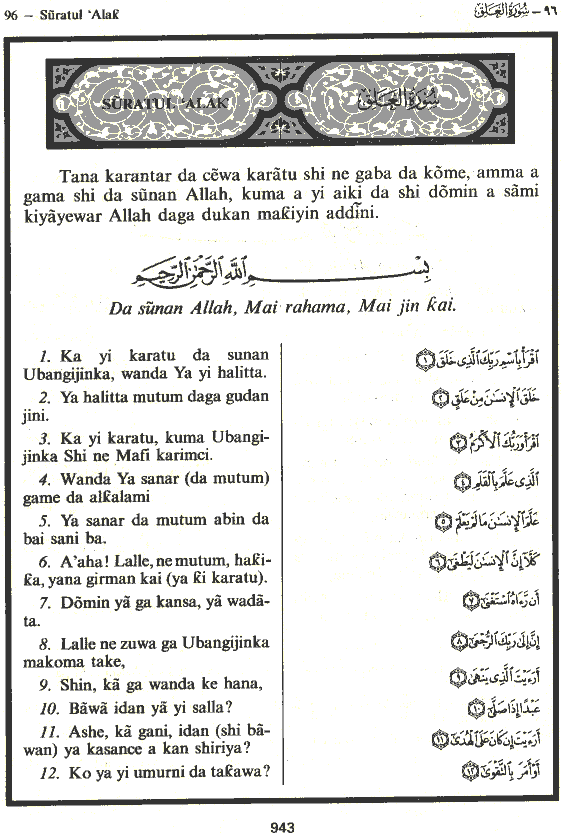 96 — Sũratul ‘Alaƙ
٩٦ — سُورَةُ الْعَلَقِ
SŨRATUL ‘ALAƘ
سُورَةُ الْعَلَقِ
Tana karantar da cẽwa karãtu shi ne gaba da kõme, amma a
gama shi da sũnan Allah, kuma a yi aiki da shi dõmin a sãmi
kiyãyewar Allah daga dukan maƙiyin addĩni.
بِسْمِ اللَّهِ الرَّحْمَٰنِ الرَّحِيمِ
Da sũnan Allah, Mai rahama, Mai jin ƙai.
1. Ka yi karatu da sunan
Ubangijinka, wanda Ya yi halitta.
2. Ya halitta mutum daga gudan
jini.
3. Ka yi karatu, kuma Ubangi-
jinka Shi ne Mafi karimci.
4. Wanda Ya sanar (da mutum)
game da alƙalami
5. Ya sanar da mutum abin da
bai sani ba.
6. A’aha! Lalle, ne mutum, haƙi-
ƙa, yana girman kai (ya ƙi karatu).
7. Dõmin yã ga kansa, yã wadã-
ta.
8. Lalle ne zuwa ga Ubangijinka
makoma take,
9. Shin, kã ga wanda ke hana,
10. Bãwã idan yã yi salla?
11. Ashe, kã gani, idan (shi bã-
wan) ya kasance a kan shiriya?
12. Ko ya yi umurni da taƙawa?
ٱقْرَأْ بِٱسْمِ رَبِّكَ ٱلَّذِى خَلَقَ ١
خَلَقَ ٱلْإِنسَٰنَ مِنْ عَلَقٍ ٢
ٱقْرَأْ وَرَبُّكَ ٱلْأَكْرَمُ ٣
ٱلَّذِى عَلَّمَ بِٱلْقَلَمِ ٤
عَلَّمَ ٱلْإِنسَٰنَ مَا لَمْ يَعْلَمْ ٥
كَلَّآ إِنَّ ٱلْإِنسَٰنَ لَيَطْغَىٰٓ ٦
أَن رَّءَاهُ ٱسْتَغْنَىٰٓ ٧
إِنَّ إِلَىٰ رَبِّكَ ٱلرُّجْعَىٰٓ ٨
أَرَءَيْتَ ٱلَّذِى يَنْهَىٰ ٩
عَبْدًا إِذَا صَلَّىٰٓ ١٠
أَرَءَيْتَ إِن كَانَ عَلَى ٱلْهُدَىٰٓ ١١
أَوْ أَمَرَ بِٱلتَّقْوَىٰٓ ١٢
943